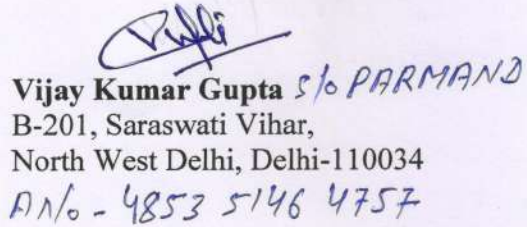 Vijay Kumar Gupta S/o PARMAND
B-201, Saraswati Vihar,
North West Delhi, Delhi-110034
A N/o - 4853 5146 4757